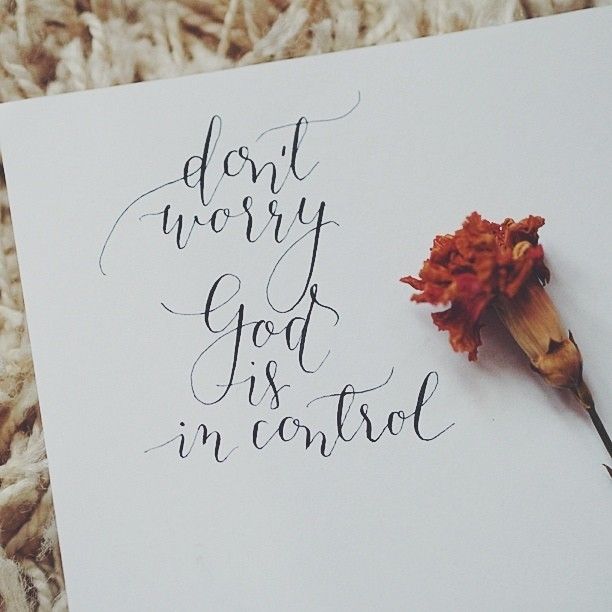 don't
worry
God
is
in control